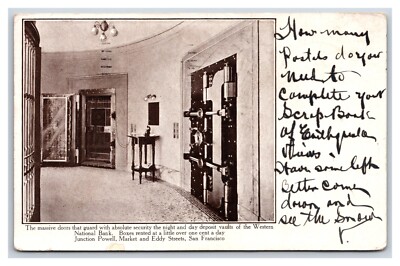 How many
Postels do you
need to
complete your
Scrap Book
of Earthquake
Views.
Have some left
Better come
down and
see the Snow
The massive doors that guard with absolute security the night and day deposit vaults of the Western
National Bank. Boxes rented at a little over one cent a day
Junction Powell, Market and Eddy Streets, San Francisco